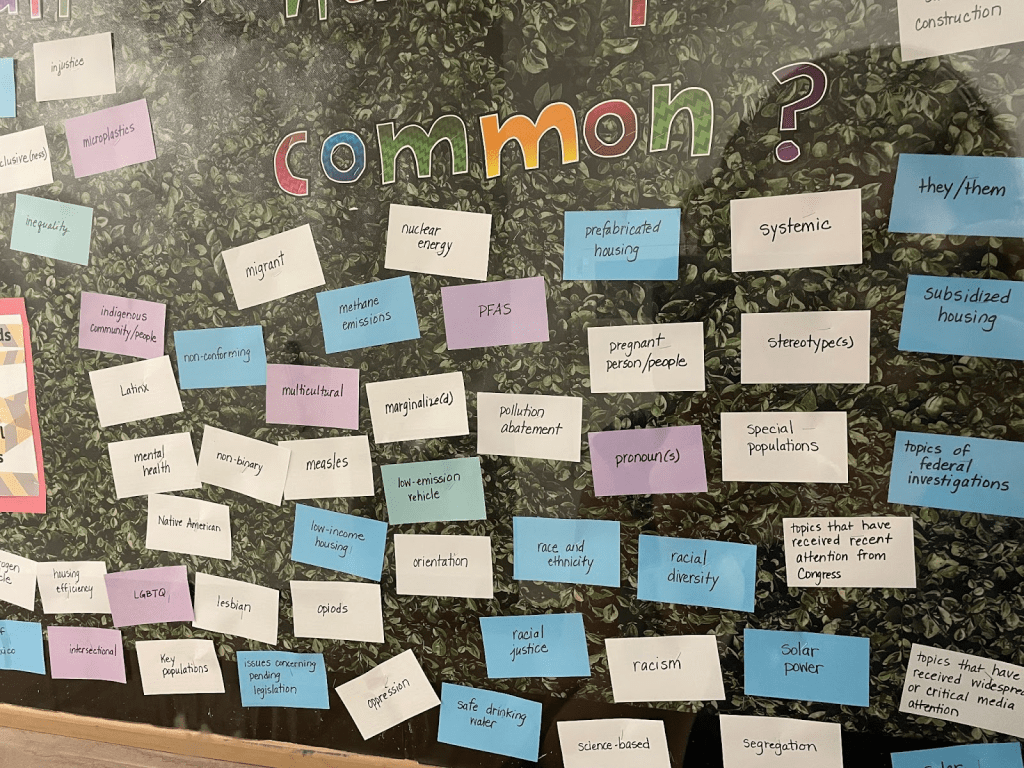 construction
injustice
common?
microplastics
clusive(ness)
they/them
inequality
nuclear
energy
prefabricated
housing
systemic
migrant
subsidized
housing
indigenous
community/people
methane
emissions
PFAS
non-conforming
pregnant
person/people
stereotype(s)
Latinx
multicultural
marginalize(d)
pollution
abatement
special
populations
mental
health
non-binary
measles
low-emission
vehicle
pronoun(s)
topics of
federal
investigations
Native American
low-income
housing
orientation
race and
ethnicity
racial
diversity
topics that have
received recent
attention from
Congress
housing
efficiency
LGBTQ
lesbian
opiods
intersectional
Key
populations
issues concerning
pending
legislation
oppression
racial
justice
racism
Solar
power
topics that have
received widespread
or critical media
attention
safe drinking
water
science-based
segregation